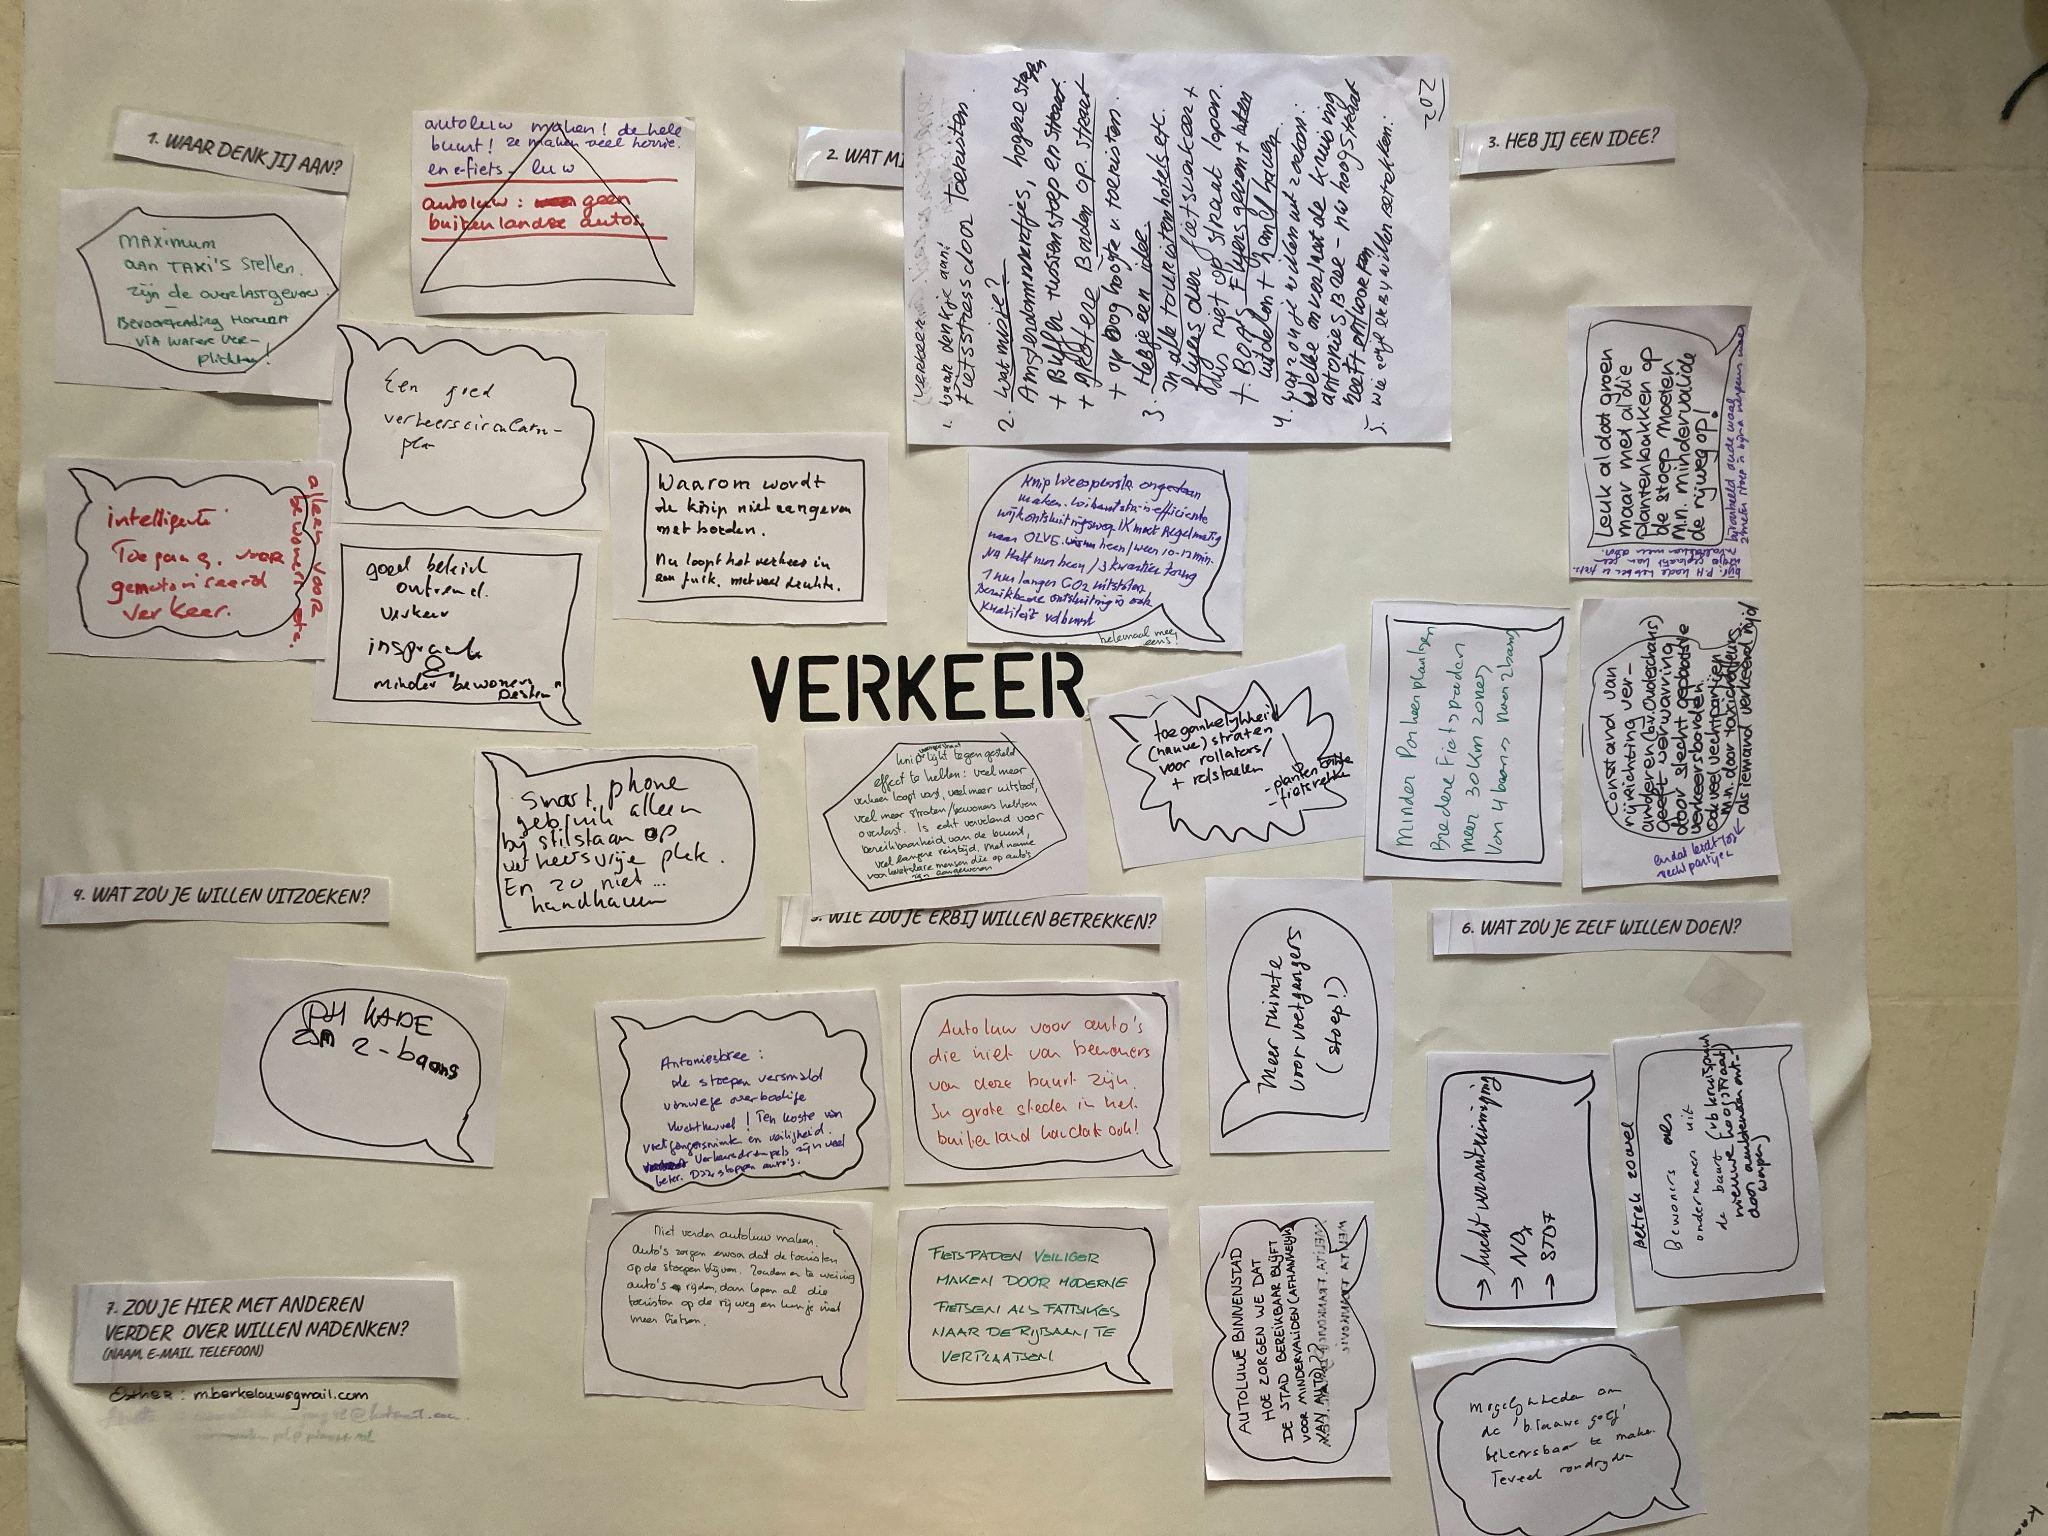 1. WAAR DENK JIJ AAN?
MAXIMUM
AAN TAXI'S STELLEN.
ZIJN DE OVERLASTGEVERS
BEVOORRADING HORECA
VIA WATER VER-
PLICHTEN!
autoluw maken! de hele
buurt! ze maken veel herrie.
en e-fiets-luw
autoluw: geen
buitenlandse autos.
Een goed
verkeerscirculatie-
plan
intelligente
Toegang voor
gemotoriseerd
verkeer.
alleen voor
bewoners etc.
goed beleid
omtrend
verkeer
inspraak
minder bewoners
pesten
Waarom wordt
de knip niet aangeven
met borden.
Nu loopt het verkeer in
een fuik. met veel
2. WAT MI
1. waar denk je aan?
Fietsstress door Toeristen.
2. Wat mis je?
Amsterdammertjes, hogere stoepen
+ Buffer tussen stoep en straat.
+ grotere Borden op straat
+ op ooghoogte v. toeristen.
3. Heb je een idee
in alle touristenhotels etc.
flyers over fietsverkeer +
dus niet op straat lopen.
+ BOA's Flyers geven + laten
uitdelen + handhaven
4. wat zou je willen uitzoeken:
Welke onverlaat de kruising
antoniesBree - nw hoogstraat
heeft ontworpen
5. wie zou je erbij willen betrekken:
ZOZ
3. HEB JIJ EEN IDEE?
Leuk al dat groen
maar met al die
plantenbakken op
de stoep moeten
m.n. mindervalide
de rijweg op!
bijvoorbeeld oude waal
Knip Weesperstr. ongedaan
maken. Wibautstr. is efficiente
wijkontsluitingsweg. IK moet Regelmatig
naar OLVG. heen/weer 10-12 min.
NA Half uur heen / 3 kwartier terug
1 uur langer CO2 uitstoten
Bereikbare ontsluiting is ook
kwaliteit v d buurt
helemaal mee
eens!
VERKEER
knip lijkt tegengesteld
effect te hebben: veel meer
verkeer loopt vast, veel meer uitstoot,
veel meer straten/bewoners hebben
overlast. Is echt vervelend voor
bereikbaarheid van de buurt,
veel langere reistijd. Met name
voor kwetsbare mensen die op auto's
zijn aangewezen
toegankelijkheid
(nauwe) straten
voor rollators/
+ rolstoelen
- planten
- fietsrekken
Minder Parkeerplaatsen
Bredere Fietspaden
meer 30km zones
Van 4 baans naar 2 baans
Constand van
rijrichting ver-
anderen (b.v. Oudeschans)
geeft verwarring
door slecht geplaatste
verkeersborden.
Ook veel vechtpartijen
m.n. door taxichauffeurs..
als iemand verkeerd rijd
en dat leidt tot
vechtpartijen
smart phone
gebruik alleen
bij stilstaan op
verkeersvrije plek.
En zo niet...
handhaven
4. WAT ZOU JE WILLEN UITZOEKEN?
5. WIE ZOU JE ERBIJ WILLEN BETREKKEN?
6. WAT ZOU JE ZELF WILLEN DOEN?
PH KADE
2-baans
Antoniesbree:
de stoepen versmald
vanwege overbodige
vluchtheuvel! Ten koste van
voetgangersruimte en veiligheid.
Verkeersdrempels zijn veel
beter. Dáár stoppen auto's.
Autoluw voor auto's
die niet van bewoners
van deze buurt zijn.
In grote steden in het
buitenland kan dat ook!
Meer ruimte
voor voetgangers
(stoep!)
→ luchtverontreiniging
→ NOx
→ STOF
Betrek zowel
Bewoners als
ondernemers uit
de buurt (v/b kruispunt
nieuwe hoogstraat)
door ambtenaren ont-
worpen)
Niet verder autoluw maken.
Auto's zorgen ervoor dat de toeristen
op de stoepen blijven. Zouden er te weinig
auto's rijden, dan lopen al die
toeristen op de rijweg en kun je niet
meer fietsen.
FIETSPADEN VEILIGER
MAKEN DOOR MODERNE
FIETSEN ALS FATBIKES
NAAR DE RIJBAAN TE
VERPLAATSEN.
AUTOLUWE BINNENSTAD
HOE ZORGEN WE DAT
DE STAD BEREIKBAAR BLIJFT
VOOR MINDERVALIDEN (AFHANKELIJK
VAN AUTO)??
Mogelijkheden om
de 'blauwe golf'
beheersbaar te maken.
Teveel rondrijden
7. ZOU JE HIER MET ANDEREN
VERDER OVER WILLEN NADENKEN?
(NAAM, E-MAIL, TELEFOON)
Esther: m.berkelouw@gmail.com